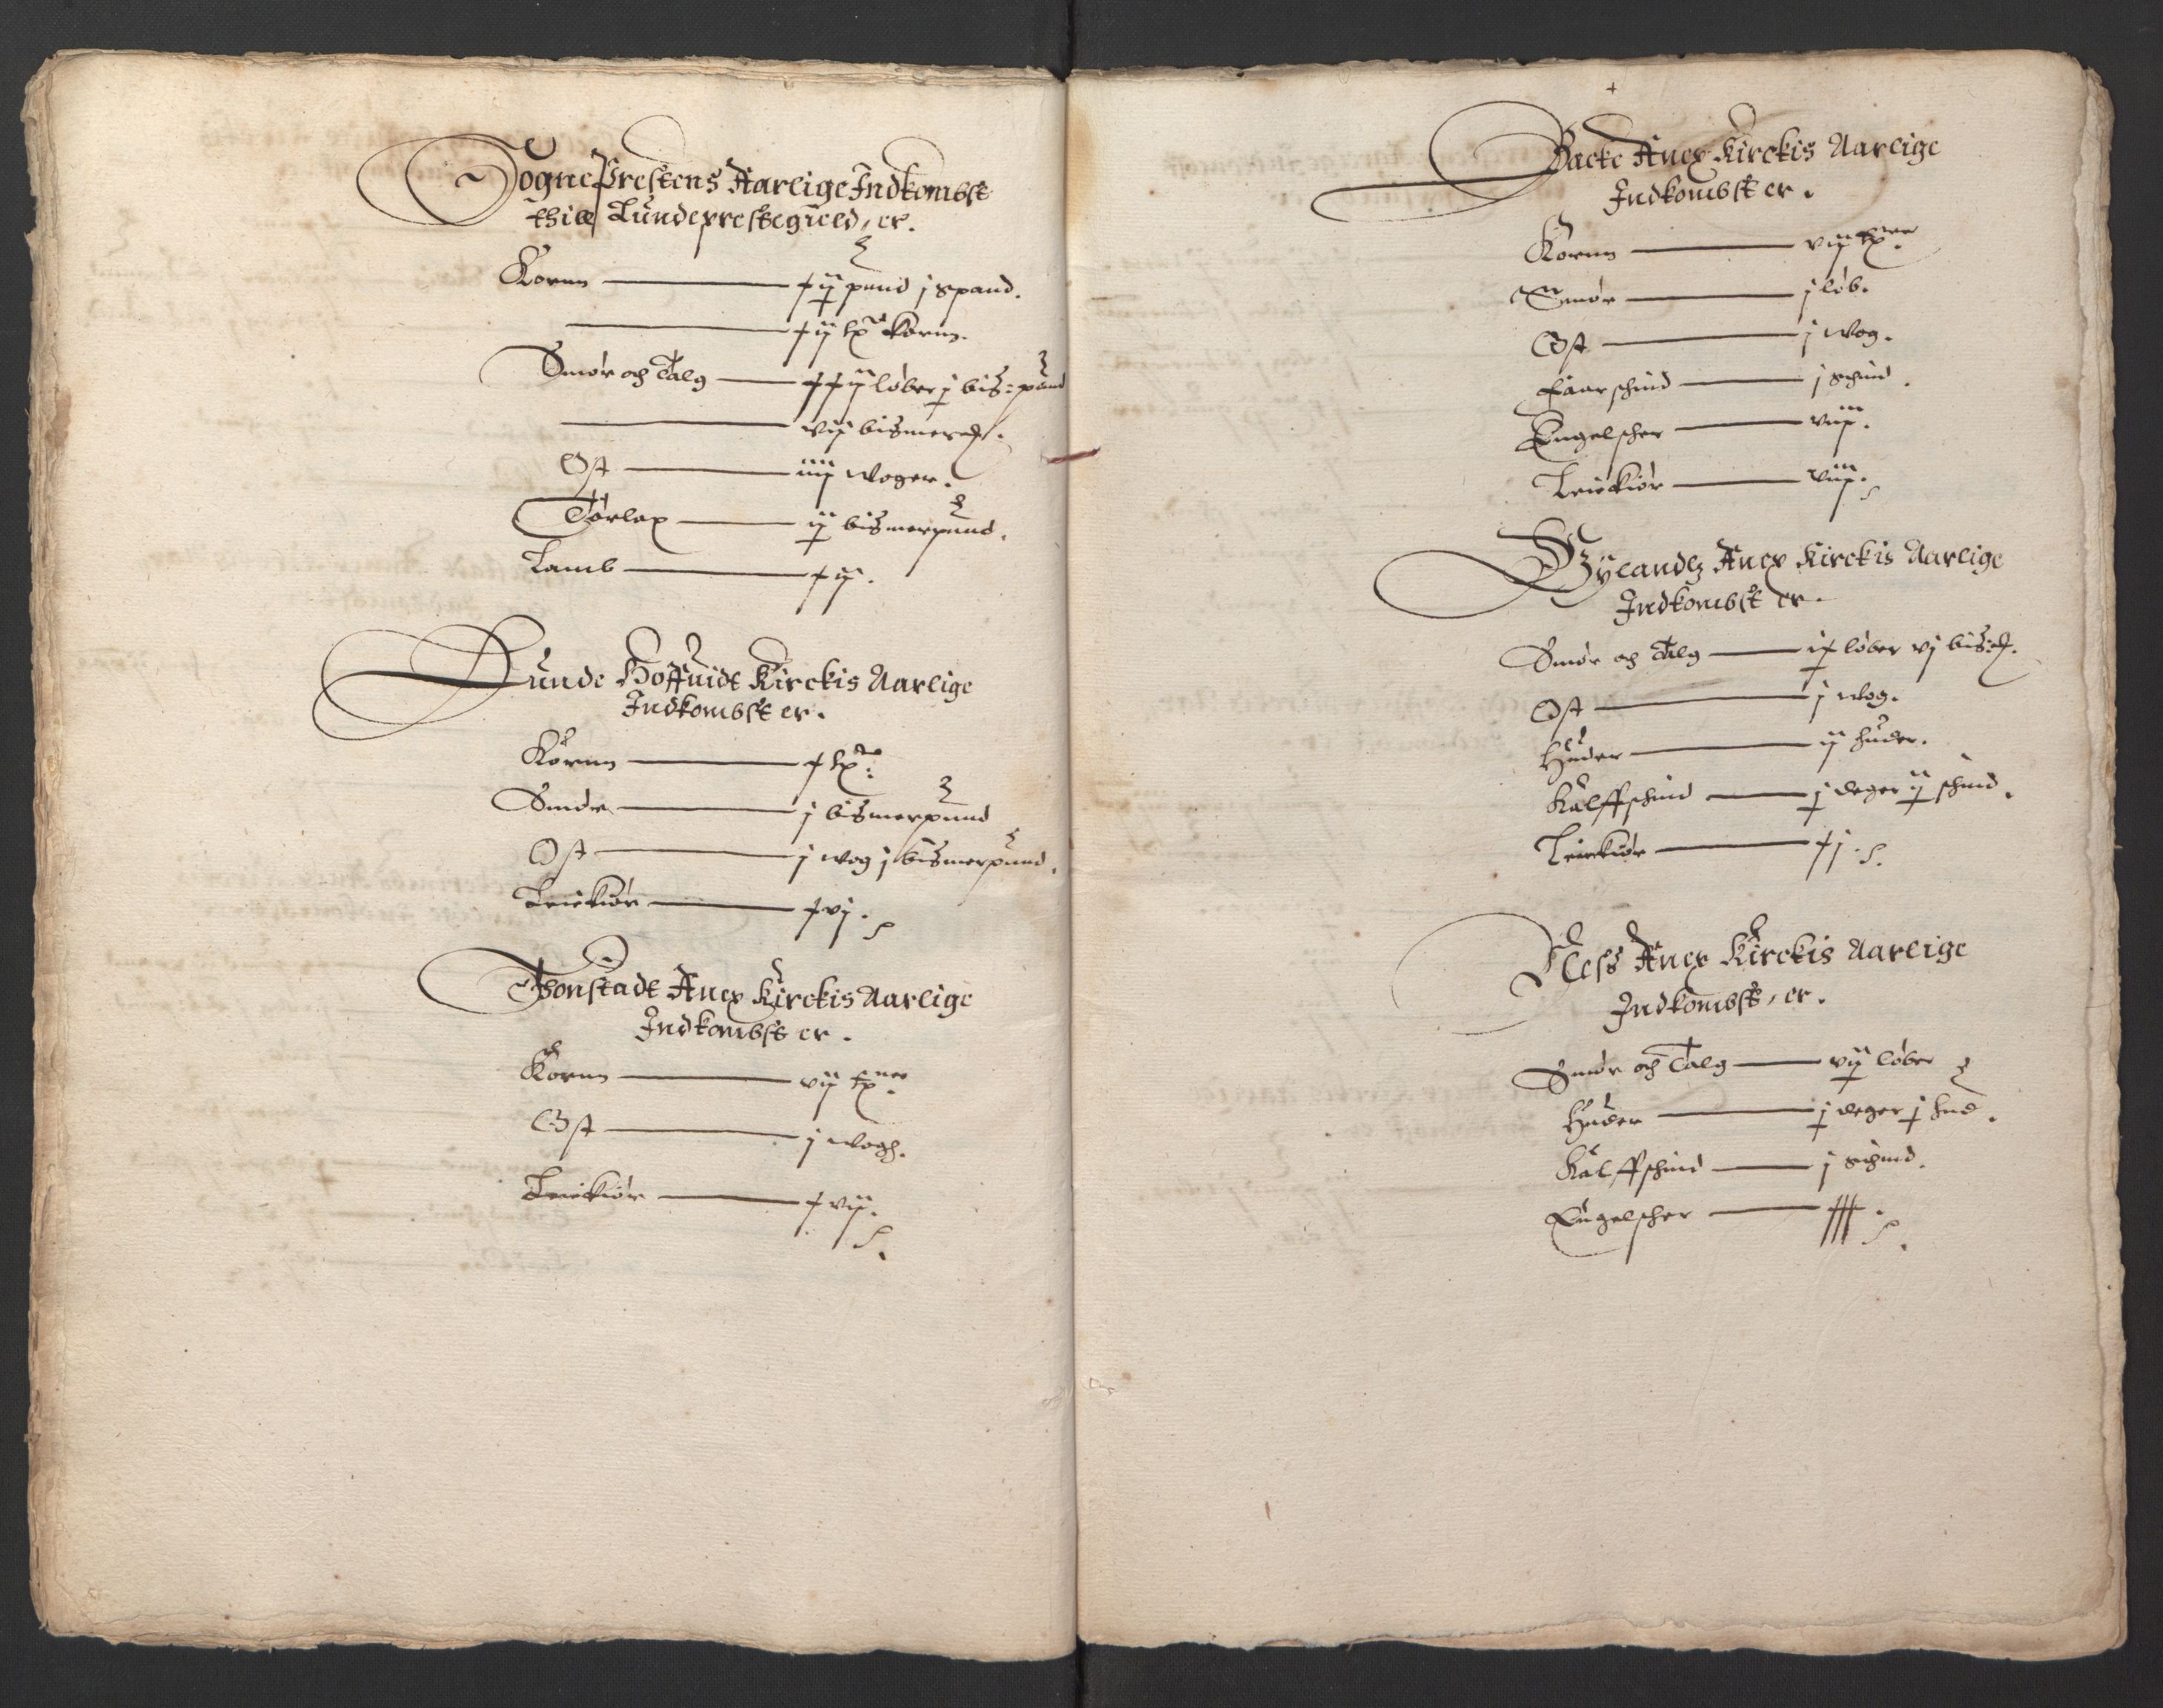 SognePrestens Aarlige Indkombst
thill Lundeprestegield, er.
Kornn — xij pund j spand.
— xij tp korn.
Smør och Talg — xxij løber j bis: pund
— vij bismer
Ost — iiij woger.
Tørlax — ij bismerpund.
Lamb — xij.
Lunde Hoffuidt Kirckis Aarlige
Indkombst er.
Kornn — x tp:
Smør — j bismerpund
Ost — j wog j bismerpund.
Leiekiør — xvj.
Tonstadt Anex Kirckis Aarlige
Indkombst er.
Kornn — vij tp
Ost — j wogh.
Leiekiør — xvij.
Backe Anex Kirckis Aarlige
Indkombst er.
Kornn — vij tp
Smør — j løb.
Ost — j wog.
Faarschind — j schind.
Engelscher — viij.
Leiekiør — viij.
Gylandz Anex Kirckis Aarlige
Indkombst er.
Smør og Talg — ix løber vj bis:
Ost — j wog.
Huder — ij huder.
Kalffschind — j deger ij schind.
Leiekiør — xj.
Ness Anex Kirckis Aarlige
Indkombst, er.
Smør och Talg — vij løber
Huder — j deger j hud.
Kalffschind — j schind.
Engelscher — xxx.